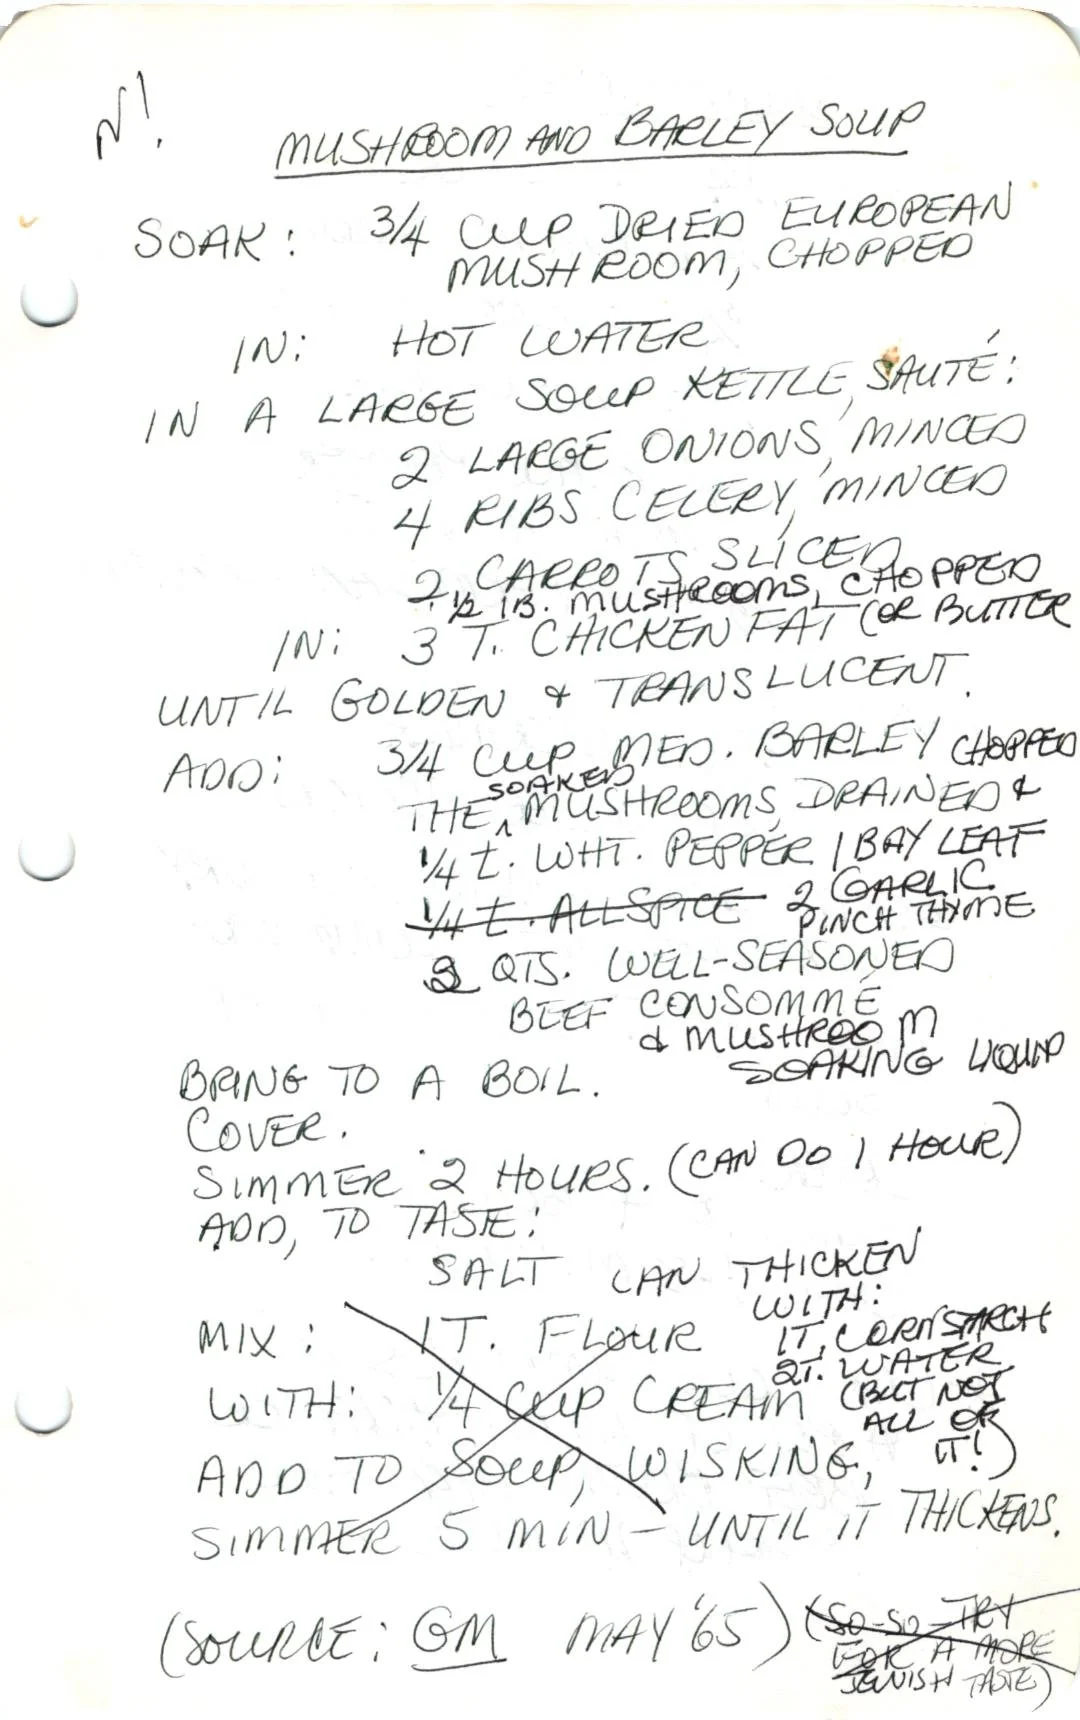 N!
MUSHROOM AND BARLEY SOUP
SOAK: 3/4 CUP DRIED EUROPEAN
MUSHROOM, CHOPPED
IN: HOT WATER
IN A LARGE SOUP KETTLE, SAUTÉ:
2 LARGE ONIONS, MINCED
4 RIBS CELERY, MINCED
2 CARROTS SLICED
1/2 LB. MUSHROOMS, CHOPPED
IN: 3 T. CHICKEN FAT (OR BUTTER
UNTIL GOLDEN & TRANSLUCENT.
ADD: 3/4 CUP MED. BARLEY CHOPPED
SOAKED
THE ^ MUSHROOMS, DRAINED &
1/4 t. WHT. PEPPER 1 BAY LEAF
1/4 t. ALLSPICE 2 GARLIC
PINCH THYME
2 QTS. WELL-SEASONED
BEEF CONSOMMÉ
& MUSHROOM
SOAKING LIQUID
BRING TO A BOIL.
COVER.
SIMMER 2 HOURS. (CAN DO 1 HOUR)
ADD, TO TASTE:
SALT CAN THICKEN
WITH:
MIX: 1 T. FLOUR 1T. CORNSTARCH
2T. WATER
WITH: 1/4 CUP CREAM (BUT NOT
ALL OF
ADD TO SOUP, WISKING, IT!)
SIMMER 5 MIN - UNTIL IT THICKENS.
(SOURCE: GM MAY '65) (SO-SO-TRY
FOR A MORE
JEWISH TASTE)